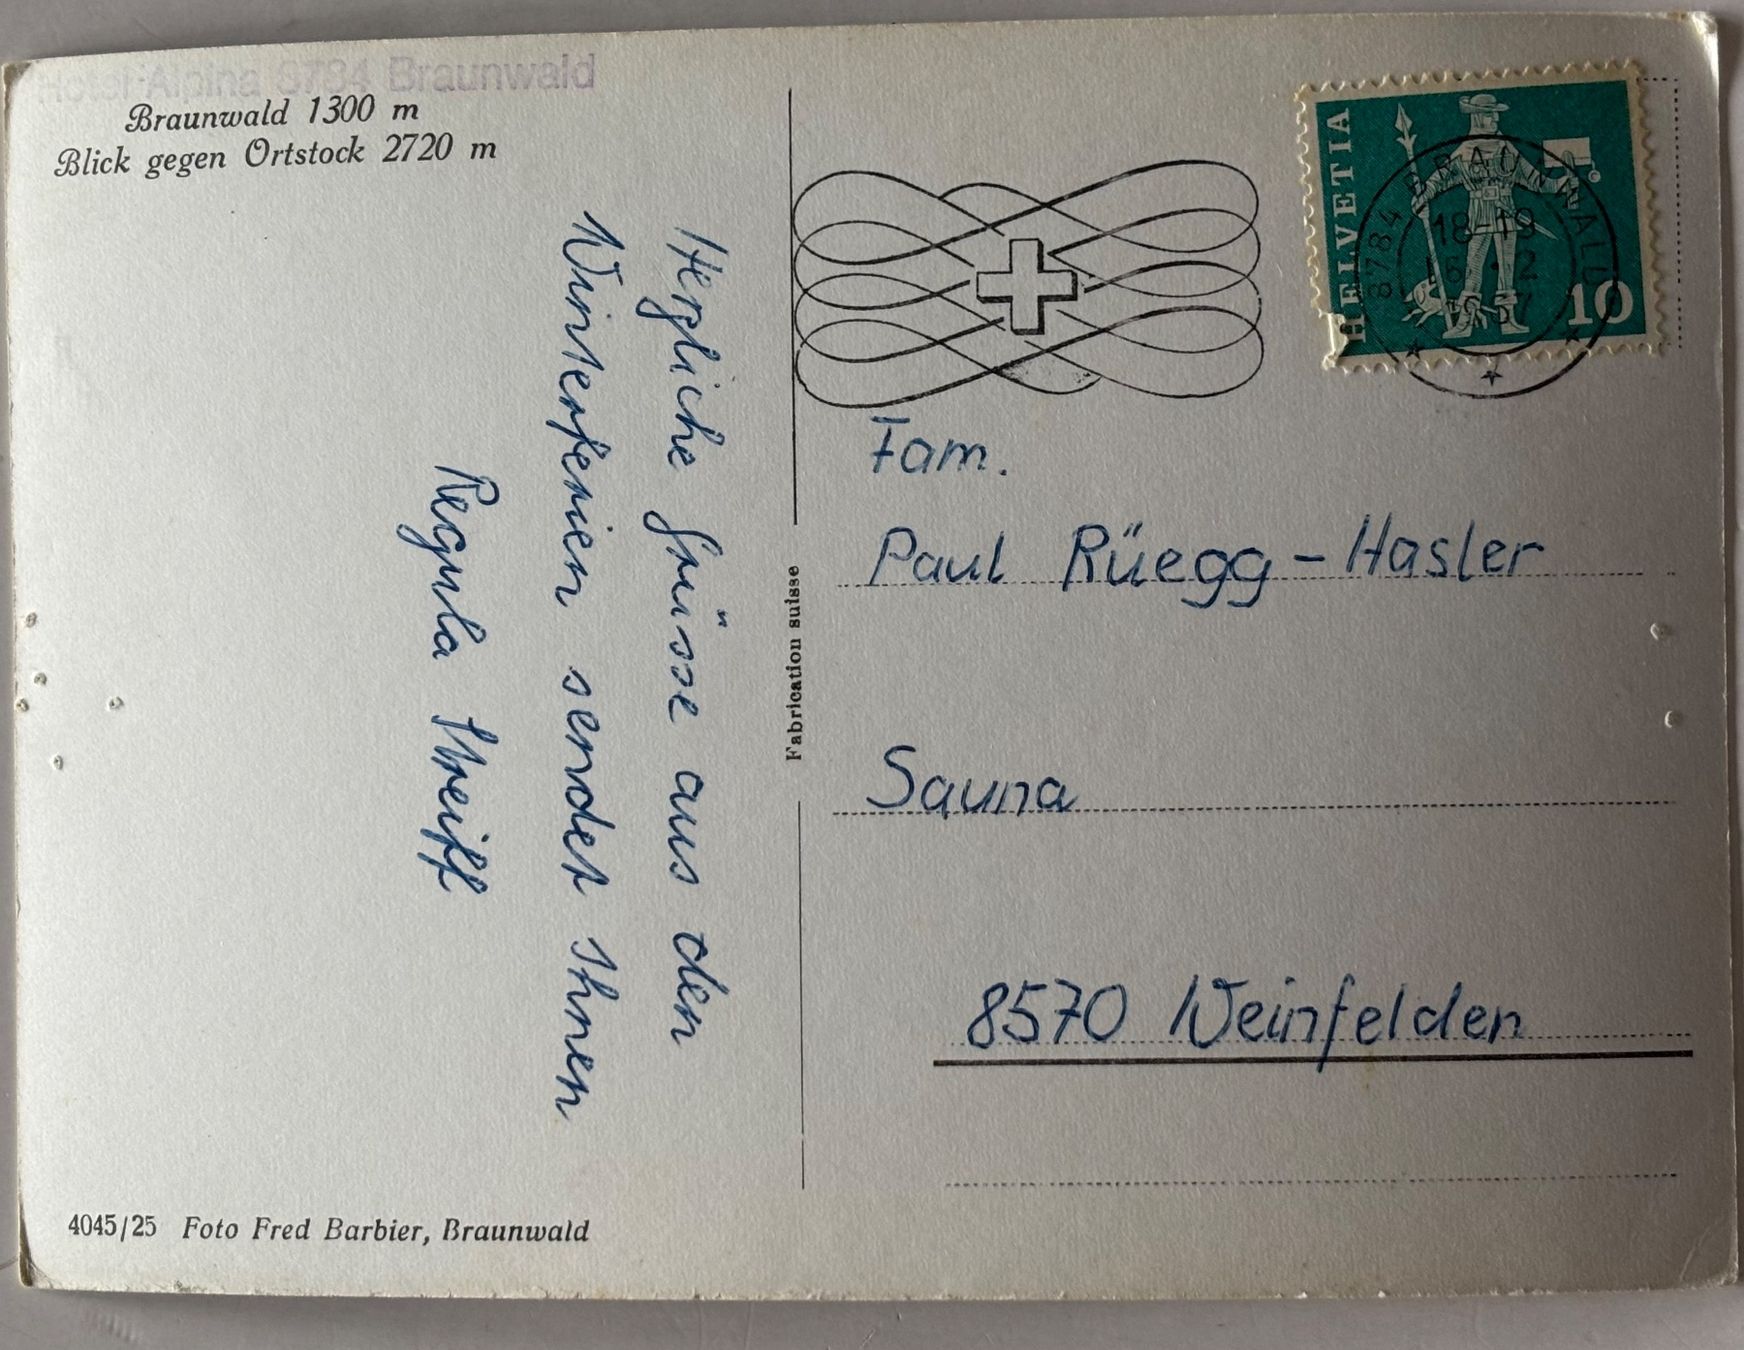 Hotel Alpina 8784 Braunwald
Braunwald 1300 m
Blick gegen Ortstock 2720 m
Herzliche Grüsse aus den
Winterferien sendet Ihnen
Regula Streiff
4045/25 Foto Fred Barbier, Braunwald
Fabrication suisse
HELVETIA
10
8784 BRAUNWALD
18-19
Fam.
Paul Rüegg-Hasler
Sauna
8570 Weinfelden